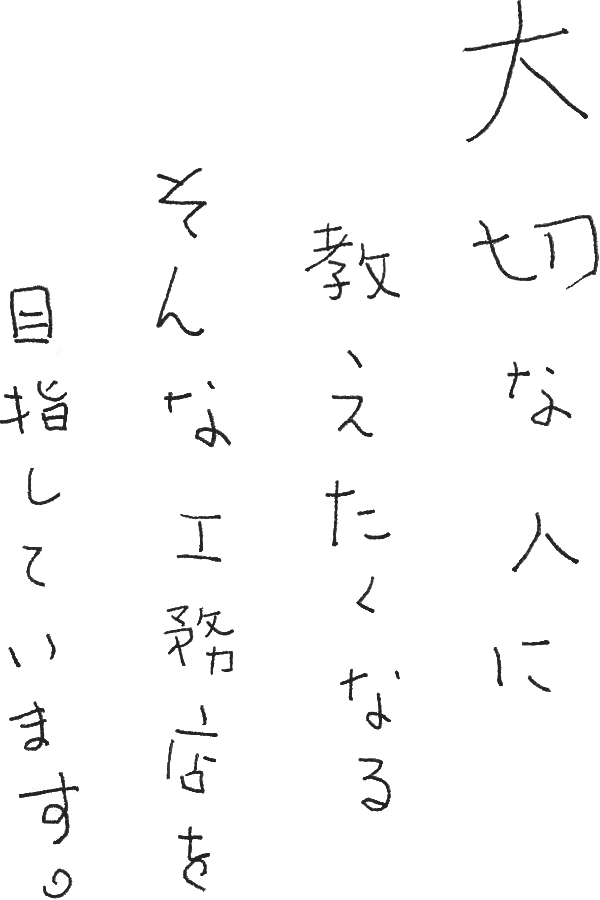 大切な人に
教えたくなる
そんな工務店を
目指しています。